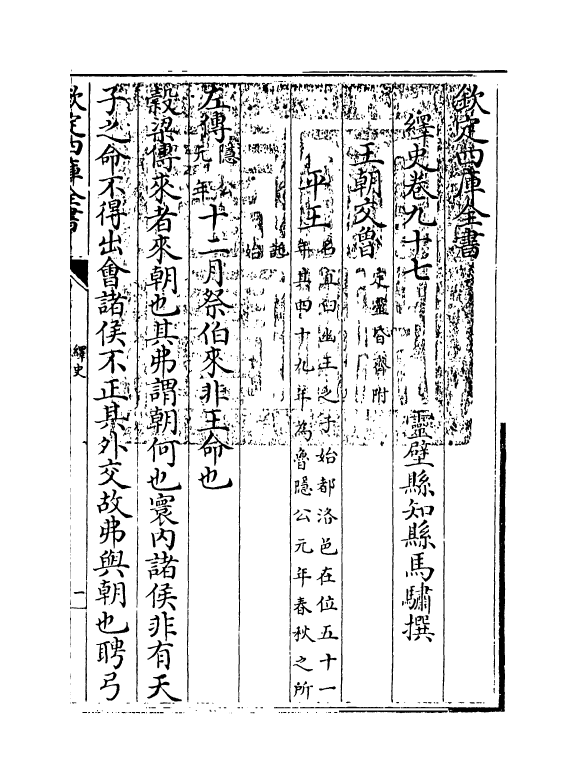 欽定四庫全書
繹史卷九十七　靈壁縣知縣馬驌撰
王朝交魯 定靈昏齊附
平王 名宜臼幽王之子始都洛邑在位五十一
年其四十九年為魯隱公元年春秋之所
始
左傳 隱公元年 十二月祭伯來非王命也
穀梁傳來者來朝也其弗謂朝何也寰內諸侯非有天
子之命不得出會諸侯不正其外交故弗與朝也聘弓
欽定四庫全書
繹史
一